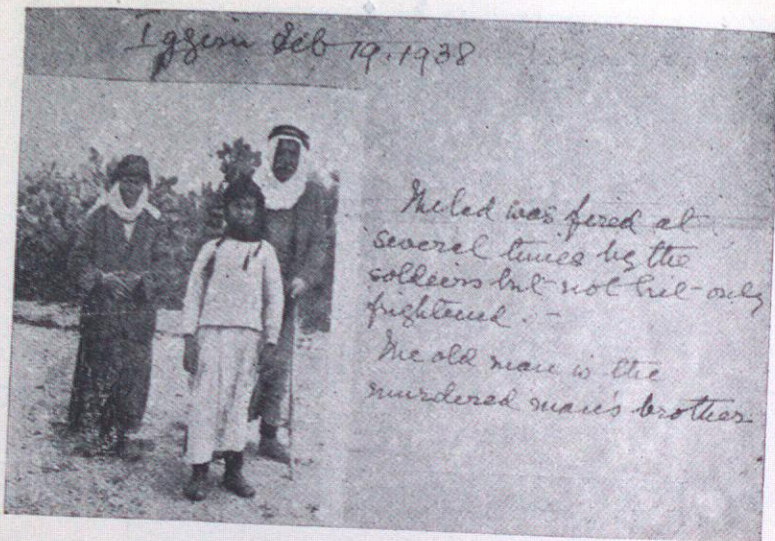 Iggim Feb 19.1938
The lad was fired at
several times by the
soldiers but not hit only
frightened. -
The old man is the
murdered man's brother